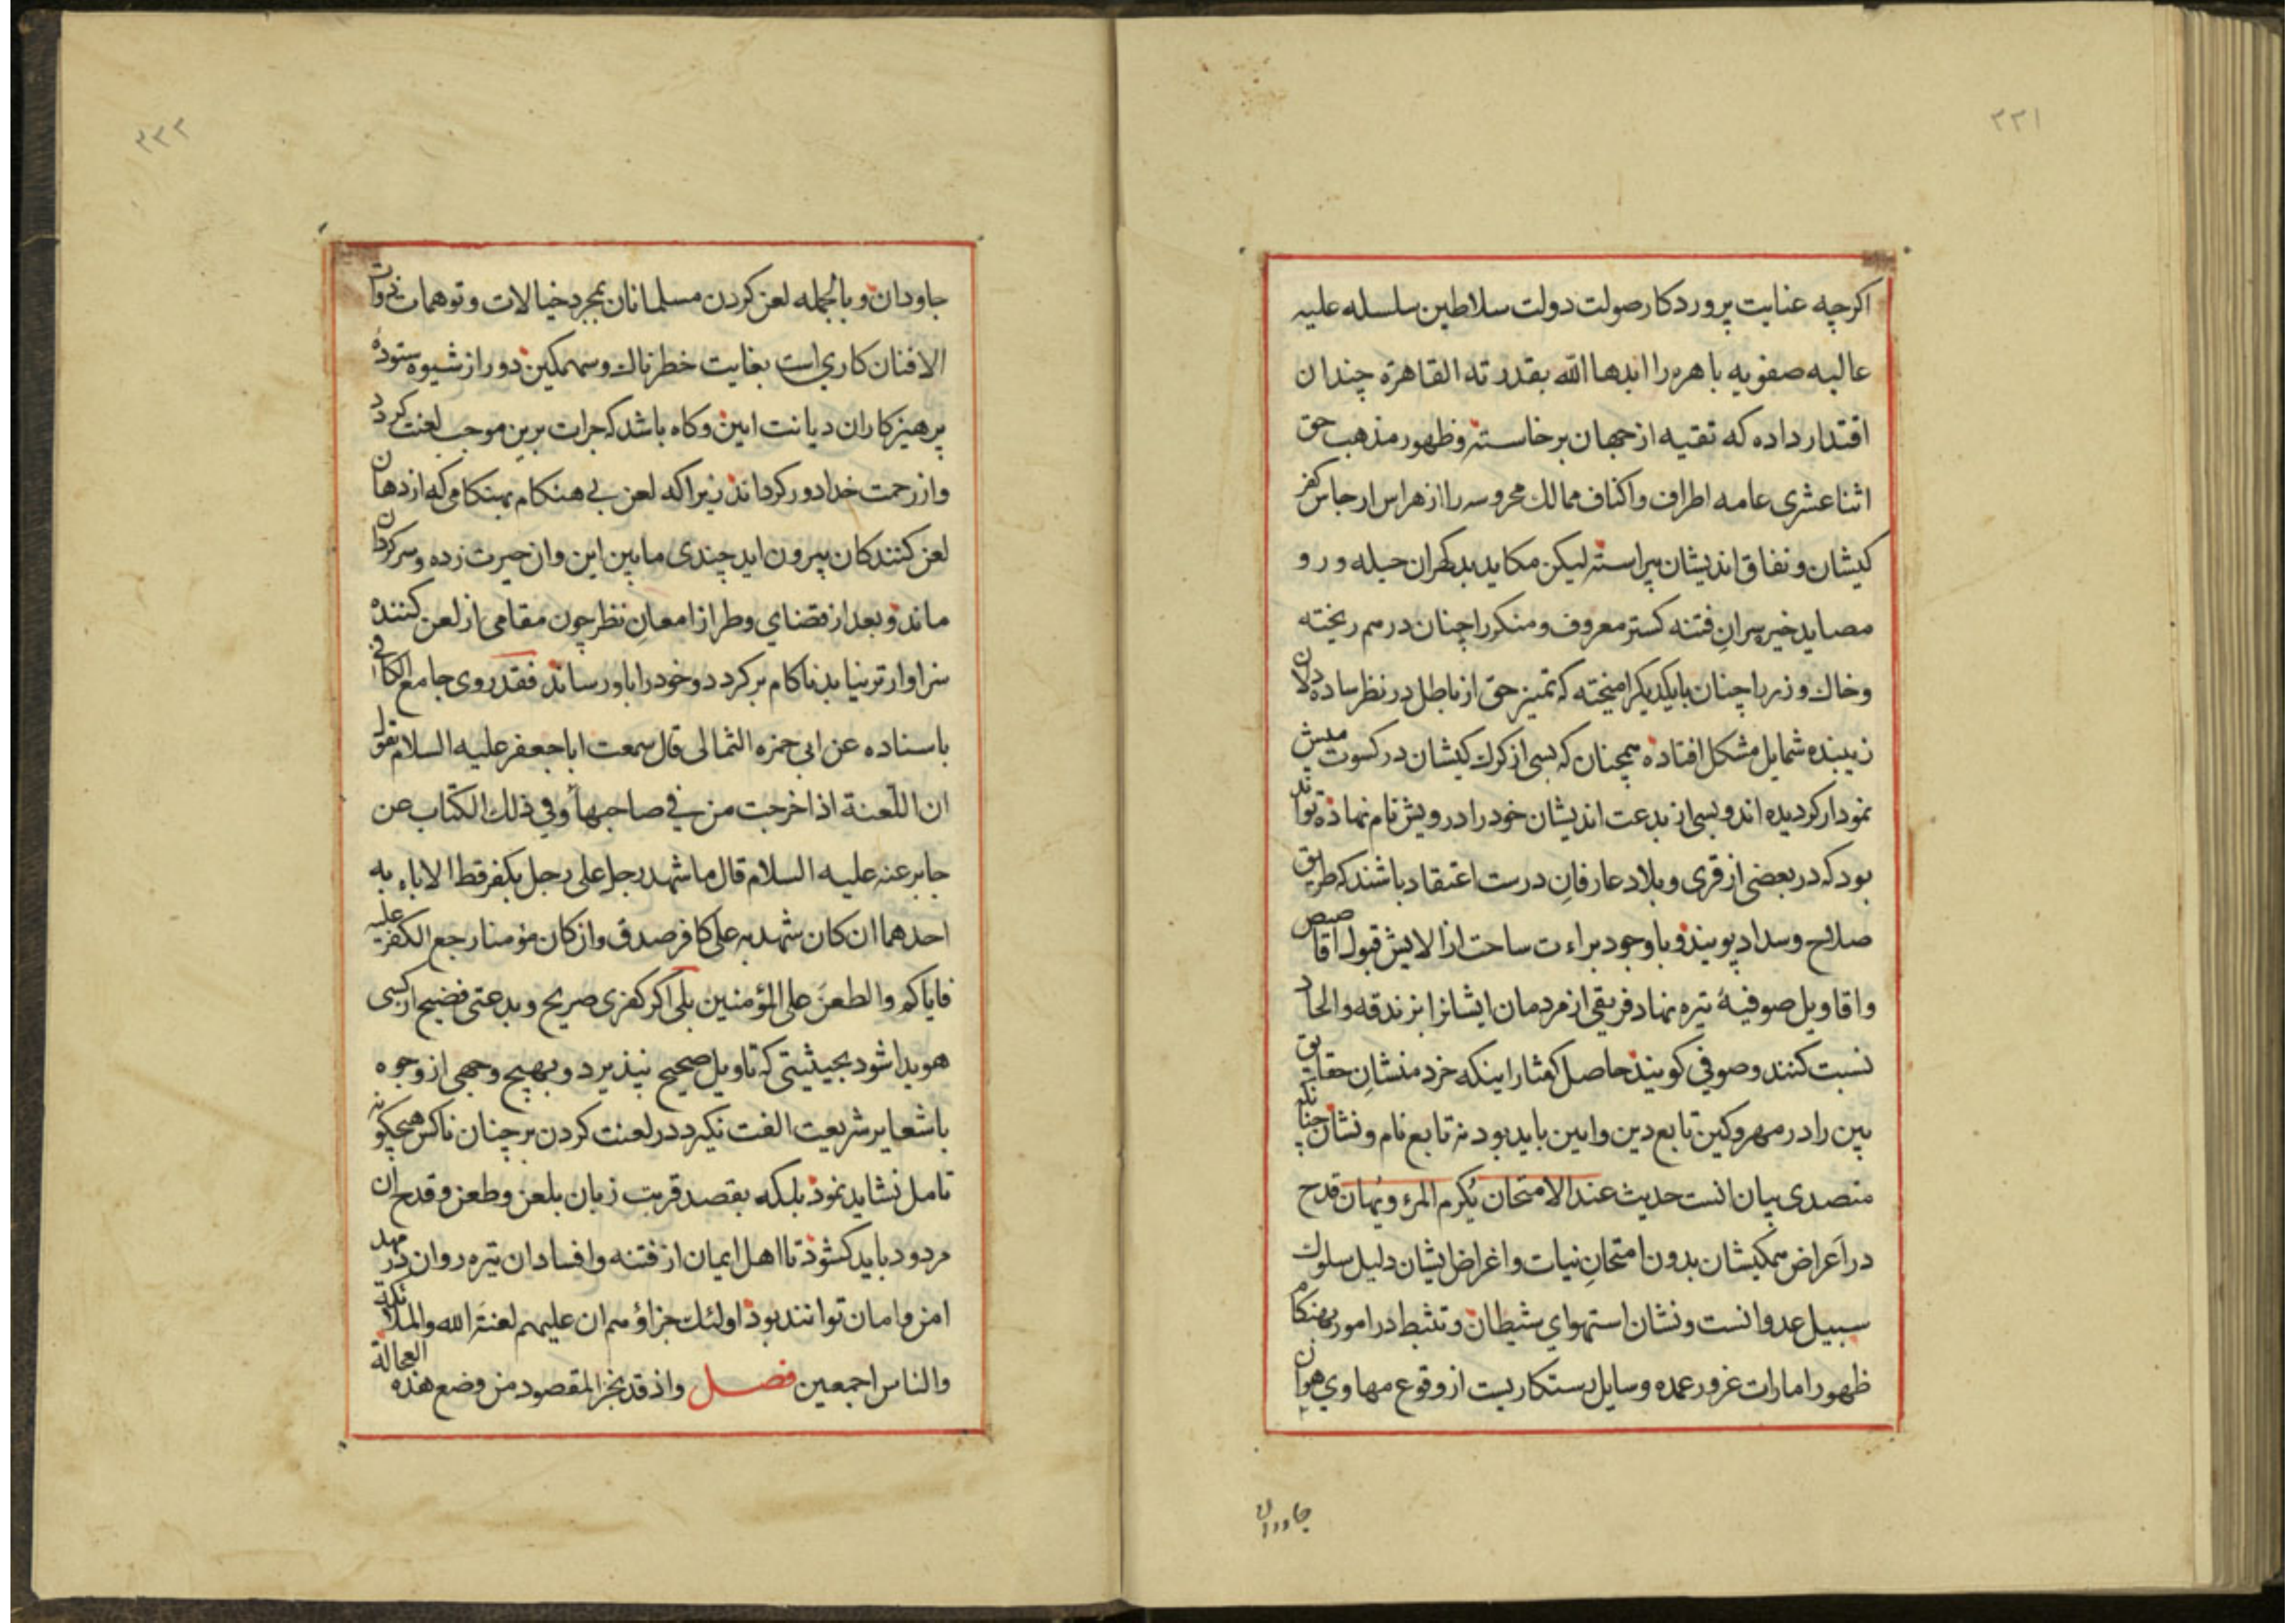 ۳۳۱
اکرچه عنایت پروردکار صولت دولت سلاطین سلسله علیه
عالیه صفویه باهره را ابدها الله بقدرته القاهرة چندان
اقتدار داده که تقیه از جهان برخاسته و ظهور مذهب حق
اثناعشری عامه اطراف واکناف ممالك محروسه را از هراس ارجاس کفر
کیشان و نفاق اندیشان پیراسته لیکن مکاید بدکهران حیله ور و
مصاید خیره سران فتنه کستر معروف و منکر را چنان درهم ریخته
وخاك و زر با چنان بایکدیکر امیخته که تمیز حق از باطل در نظر ساده دلان
زیبنده شمایل مشکل افتاده همچنان که بسی از کرك کیشان در کسوت میش
نمودار کردیده اند و بسی از بدعت اندیشان خود را درویش نام نهاده تواند
بود که در بعضی از قری و بلاد عارفانِ درست اعتقاد باشند که طریق
صلاح وسداد پویند و با وجود براءت ساحت از الایش قبول اقاصیص
واقاویل صوفیهٔ تیره نهاد فریقی از مردمان ایشانرا بزندقه والحاد
نسبت کنند وصوفی کویند حاصل کفتار اینکه خرد منشانِ حقایق
بین را در مهر وکین تابع دین وایین باید بود نه تابع نام و نشان چنانکه
متصدی بیان انست حدیث عند الامتحان یُکرم المرء ویُهان قدح
در اَعراض همکیشان بدون امتحانِ نیات واغراض ایشان دلیل سلوك
سبیل عدوانست ونشان استهوای شیطان و تثبط در امور بهنکام
ظهور امارات غرور عمده وسایل رستکاریست از وقوع مهاوی هوان
جاودان
۳۳۲
جاودان و بالجمله لعن کردن مسلمانان بمجرد خیالات وتوهمات
الافنان کاری است بغایت خطرناك وسهمکین دور از شیوه ستودهٔ
پرهیزکاران دیانت ایین وکاه باشد که جرات برین موجب لعنت کردد
واز رحمت خدا دور کرداند زیرا که لعن بی هنکام بهنکامی که از دهان
لعن کنندکان بیرون اید چندی مابین این وان حیرت زده وسرکردان
ماند و بعد از قضای وطر از امعانِ نظر چون مقامی از لعن کننده
سزاوارتر نیابد ناکام برکردد وخود را باو رساند فقد روی جامع الکافی
باسناده عن ابی حمزه الثمالی قال سمعت ابا جعفر علیه السلام یقول
ان اللّعنة اذا خرجت من فی صاحبها وفی ذلك الکتاب عن
جابر عنه علیه السلام قال ما شهد رجل علی رجل بکفر قط الا باء به
احدهما ان کان شهد به علی کافر صدق وان کان مؤمنا رجع الکفر علیه
فایاکم والطعن علی المؤمنین بلی اکر کفری صریح وبدعتی فضیح از کسی
هویدا شود بحیثیتی که تاویل صحیح نپذیرد و بهیچ وجهی از وجوه
باشعایر شریعت الفت نکیرد در لعنت کردن بر چنان ناکس هیچکونه
تامل نشاید نمود بلکه بقصد قربت زبان بلعن وطعن وقدح ان
مردود باید کشود تا اهل ایمان از فتنه وافساد ان تیره روان در مهد
امن وامان توانند بود اولئك جزاؤهم ان علیهم لعنة الله والملائکة
والناس اجمعین فصل واذ قد نجز المقصود من وضع هذه العجالة